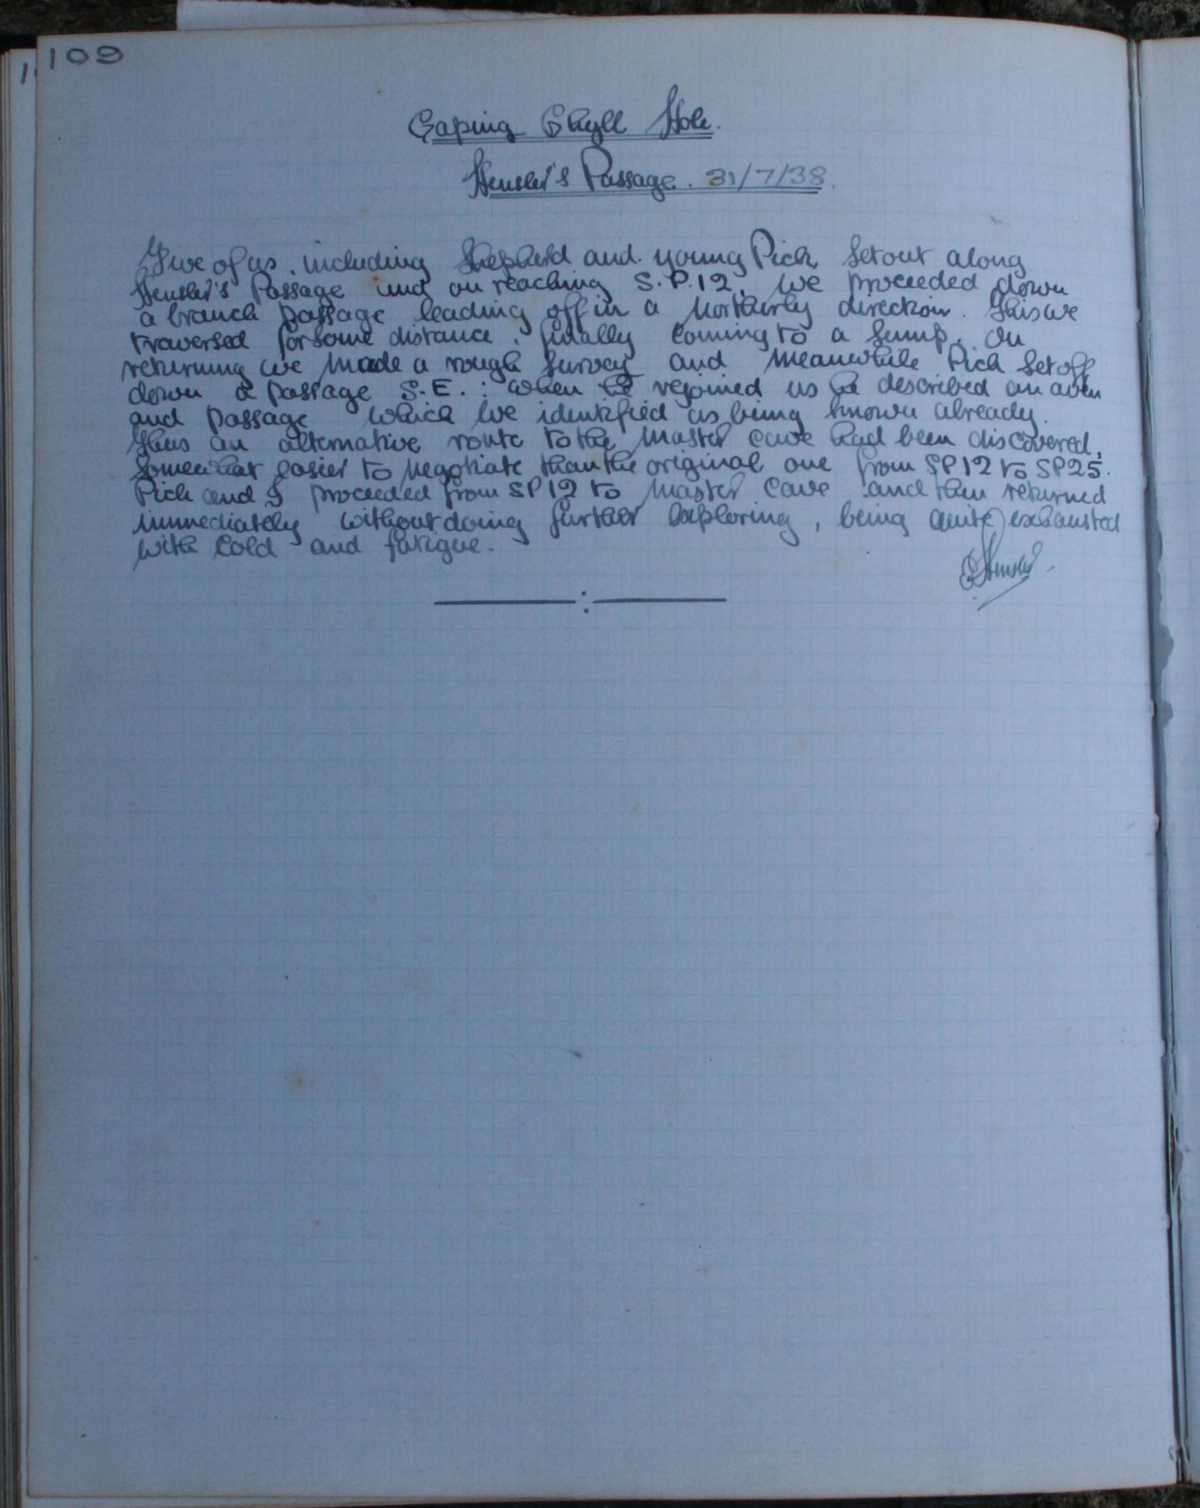 109
Gaping Ghyll Hole.
Hensler's Passage. 31/7/38.
Five of us, including Shepherd and young Pick set out along
Hensler's Passage and on reaching S.P.12, we proceeded down
a branch passage leading off in a northerly direction. This we
traversed for some distance, finally coming to a sump. On
returning we made a rough survey and meanwhile Pick set off
down a passage S.E.: when he rejoined us he described an aven
and passage which we identified as being known already.
Thus an alternative route to the Master cave had been discovered,
somewhat easier to negotiate than the original one from SP12 to SP25.
Pick and I proceeded from SP12 to Master Cave and then returned
immediately without doing further exploring, being quite exhausted
with cold and fatigue.
E Hensler.